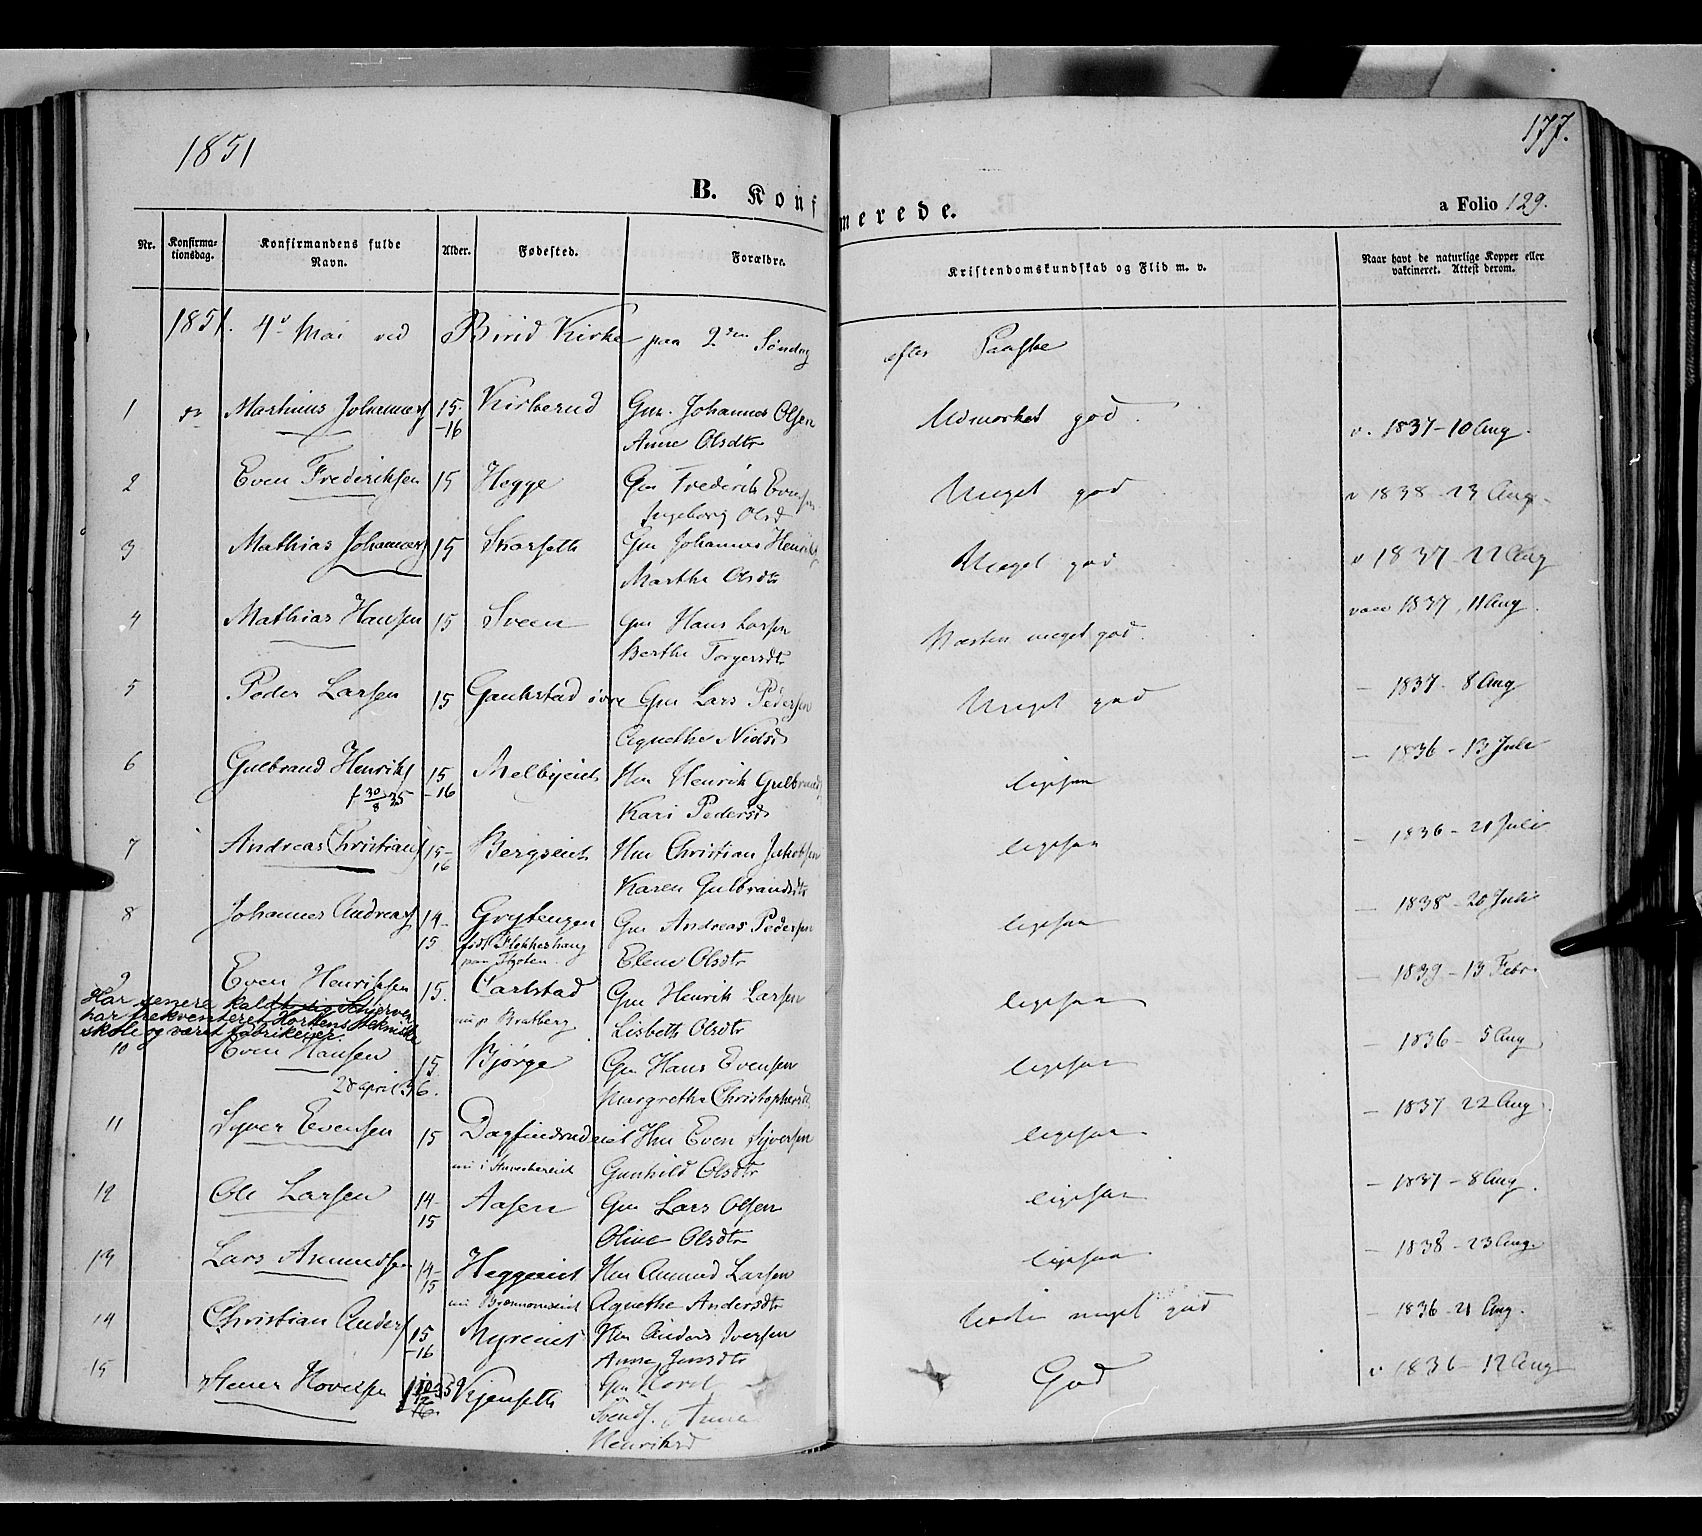 1851
177.
B. Konf
merede.
a Folio 129.
Nr. Konfirma-tionsdag. Konfirmandens fulde Navn. Alder. Fødested. Forældre. Kristendomskundskab og Flid m. v. Naar havt de naturlige Kopper eller vakcineret. Attest derom.
1851. 4de Mai ved Birid Kirke paa 2den Søndag efter Paaske
1 Mathias Johannes 15-16 Kirkerud Gm. Johannes Olsen Udmærket god. v. 1837-10 Aug.
Anne Olsdtr
2 Even Frederiksen 15 Hegge Gm Frederik Evensen Meget god v 1838-23 Aug.
Ingeborg Olsd
3 Mathias Johannes 15 Skarseth Gm Johannes Henriks Meget god v 1837-22 Aug
Marthe Olsdtr
4 Mathias Hansen 15 Sveen Gm Hans Larsen Næsten meget god. vacc 1837, 11 Aug.
Berthe Torgersdtr
5 Peder Larsen 15 Gaukstad øvre Gm Lars Pedersen Meget god — 1837-8 Aug
Agnethe Nielsd
6 Gulbrand Henriks 15-16 Melbyeiet Hm Henrik Gulbrands ligesaa — 1836-13 Juli
f 30/8 35 Kari Pedersd
7 Andreas Christians 15-16 Bergseiet Hm Christian Jakobsen ligesaa — 1836-21 Juli
Karen Gulbrandsdtr
8 Johannes Andreas 14-15 Grytengen Gm Andreas Pedersen ligesaa — 1838-20 Juli
født Flokkeshaug Elene Olsdtr
9 Even Henriksen 15. Carlstad Gm Henrik Larsen ligesaa — 1839-13 Febr.
Har senere kaldt sig Skjerven
har frekventeret Hortens tekniske
skole og været fabrikeier.
Bratberg Lisbeth Olsdtr
10 Even Hansen 15 Bjørge Gm Hans Evensen ligesaa — 1836-5 Aug
28 april 36. Margrethe Christophersdtr
11 Syver Evensen 15 Dagfindrudeiet Hm Even Syversen ligesaa — 1837-22 Aug.
Gunhild Olsdtr
12 Ole Larsen 14-15 Aasen Gm Lars Olsen ligesaa — 1837-8 Aug.
Oline Olsdtr
13 Lars Amundsen 14-15 Heggeeiet Hm Amund Larsen ligesaa — 1838-23 Aug.
Agnethe Andersdtr
14 Christian Anders 15-16 Myreiet Hm Anders Iversen Næsten meget god — 1836-21 Aug.
Anne Jensdtr
15 Hovelsen Kjenseth Gm Hovel God v 1836-12 Aug
Svends. Anne
Henriksd